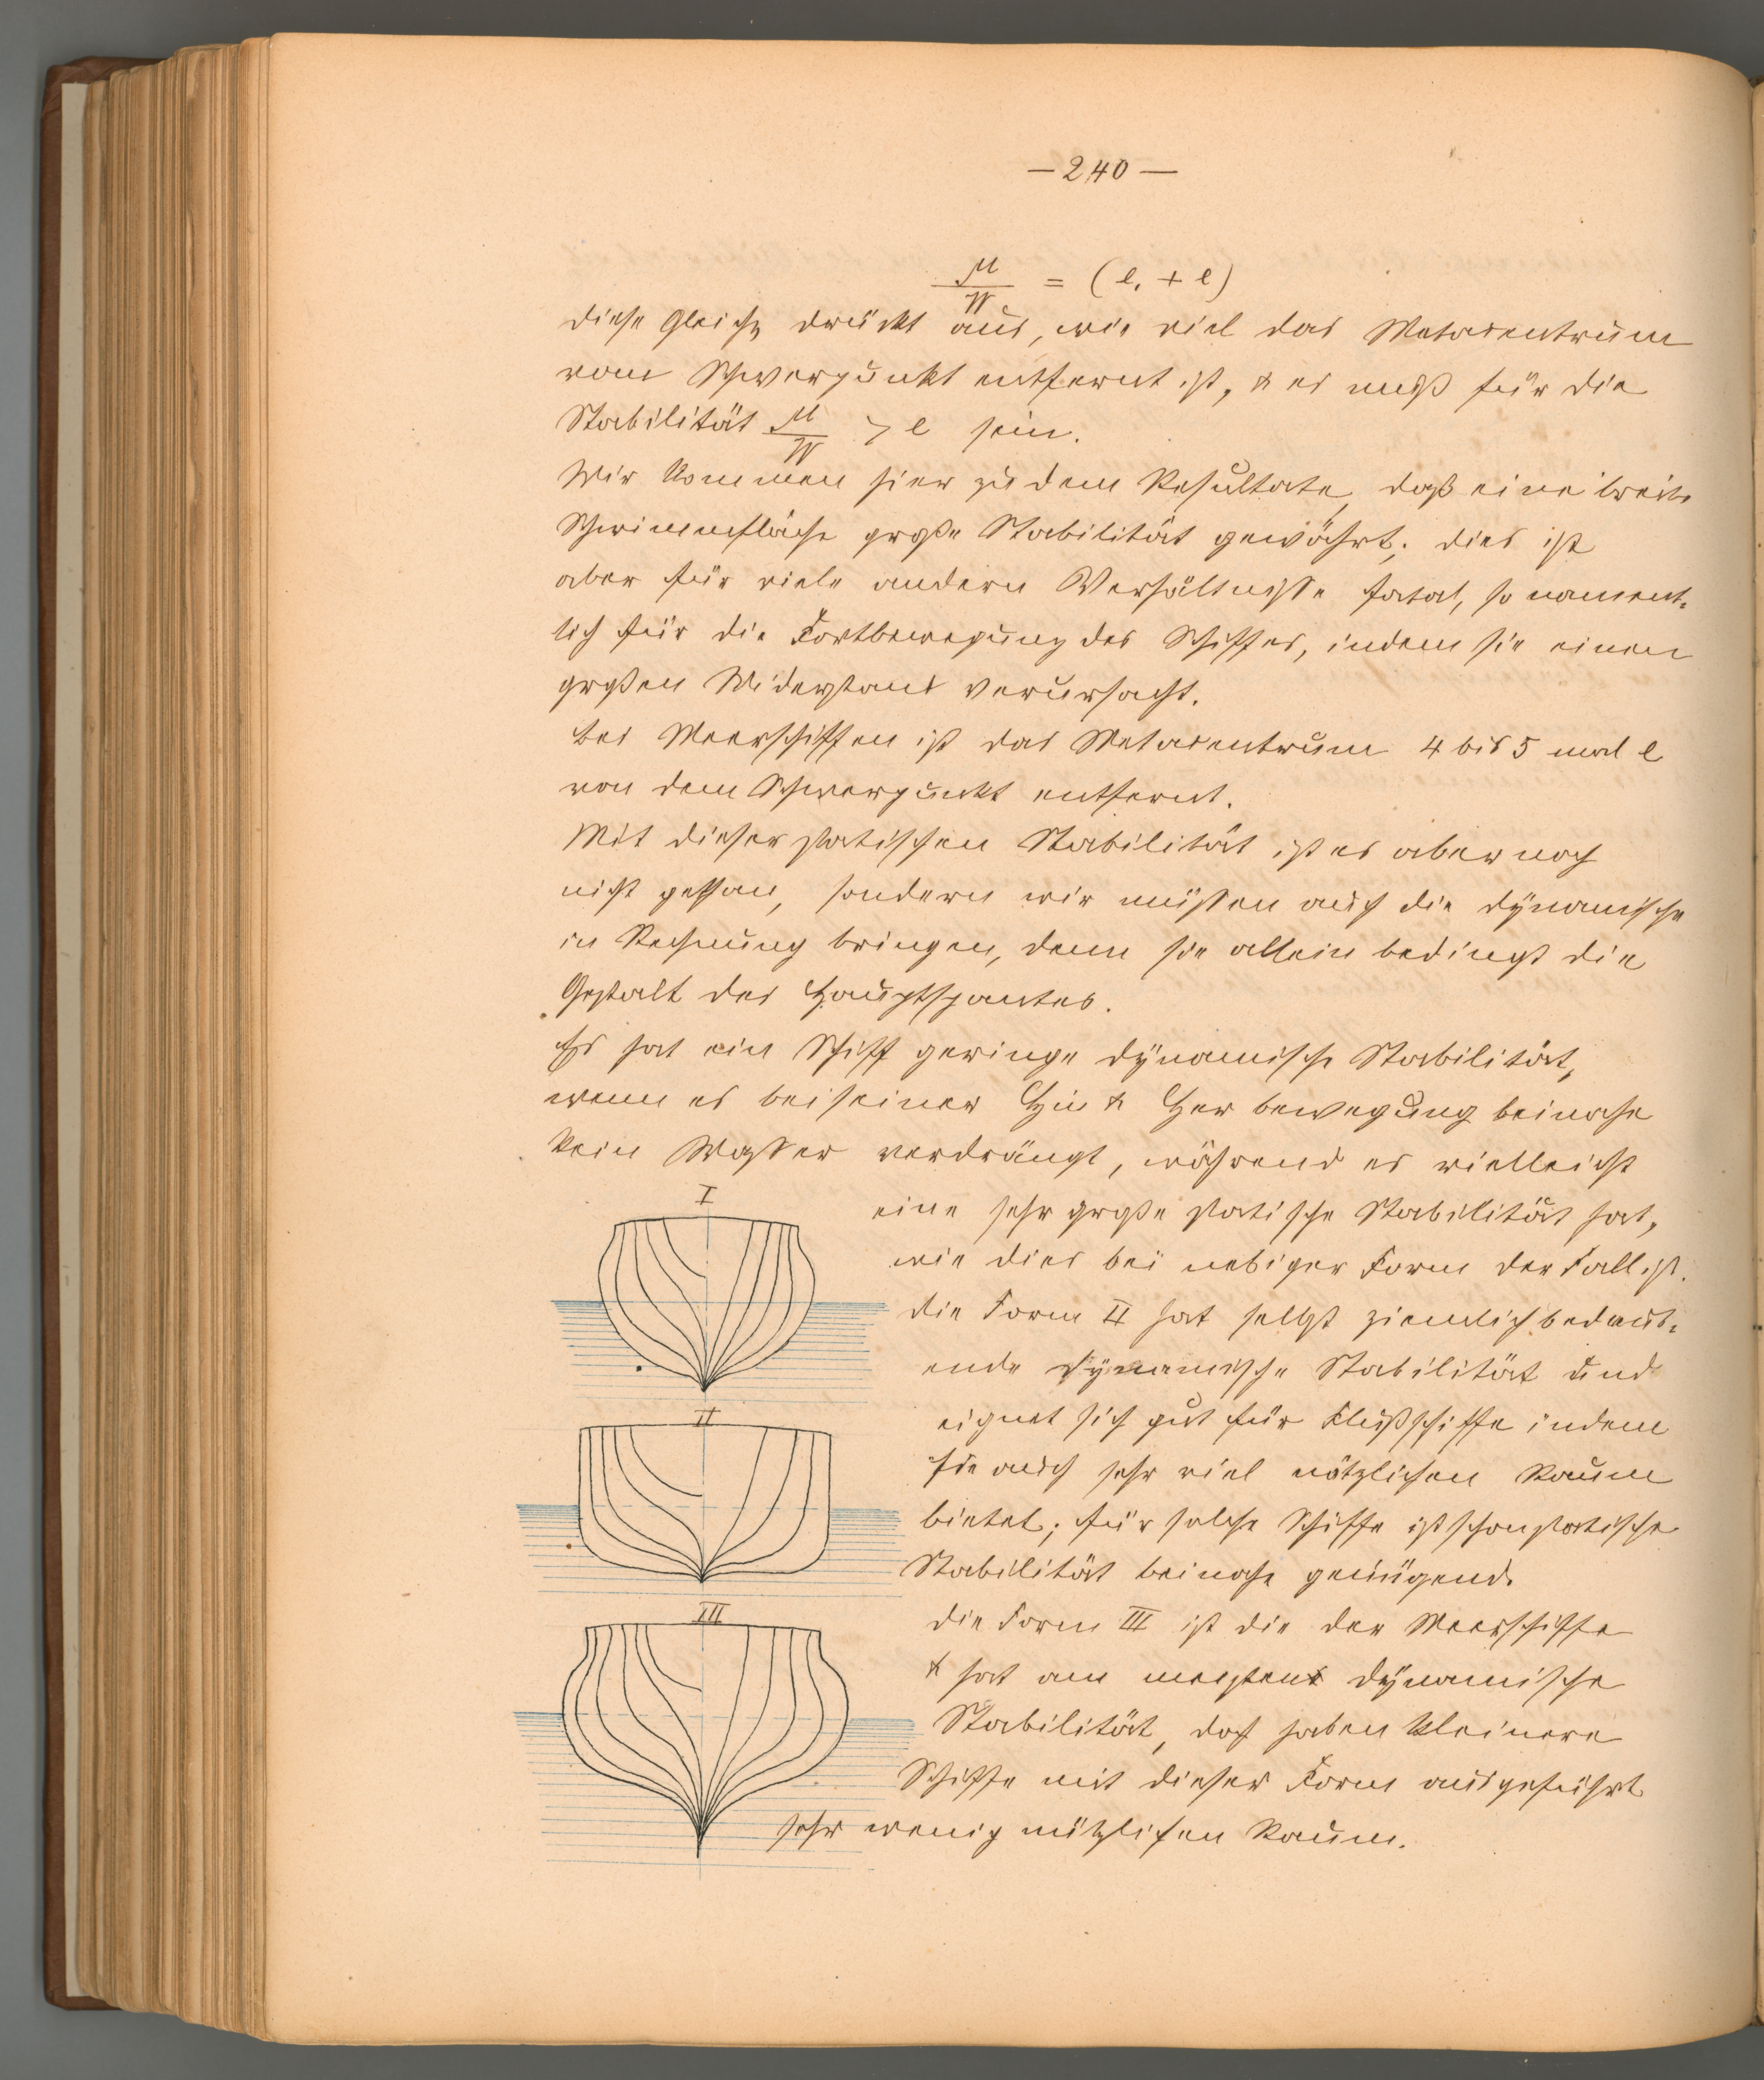 — 240 —
μ/W = (e, + e)
diese Gleichg drückt aus, wie viel das Metacentrum
vom Schwerpunkt entfernt ist, & es muß für die
Stabilität μ/W > e sein.
Wir kommen hier zu dem Resultate, daß eine breite
Schwimmfläche große Stabilität gewährt; dies ist
aber für viele andern Verhältnisse fatal, so nament-
lich für die Fortbewegung des Schiffes, indem sie einen
großen Widerstand verursacht.
Bei Meerschiffen ist das Metacentrum 4 bis 5 mal e
von dem Schwerpunkt entfernt.
Mit dieser statischen Stabilität ist es aber noch
nicht gethan, sondern wir müssen auch die dynamische
in Rechnung bringen, denn sie allein bedingt die
Gestalt des Hauptspantes.
Es hat ein Schiff geringe dynamische Stabilität,
wenn es bei seiner Hin & Her bewegung beinahe
kein Wasser verdrängt, während es vielleicht
I
eine sehr große statische Stabilität hat,
wie dies bei nebiger Form der Fall ist.
die Form II hat selbst ziemlich bedeut-
ende dynamische Stabilität und
II
eignet sich gut für Flußschiffe indem
sie auch sehr viel nützlichen Raum
bietet; für solche Schiffe ist schon statische
Stabilität beinahe genügend.
III
die Form III ist die der Meerschiffe
& hat am meisten dynamische
Stabilität, doch haben kleinere
Schiffe mit dieser Form ausgeführt
sehr wenig nützlichen Raum.